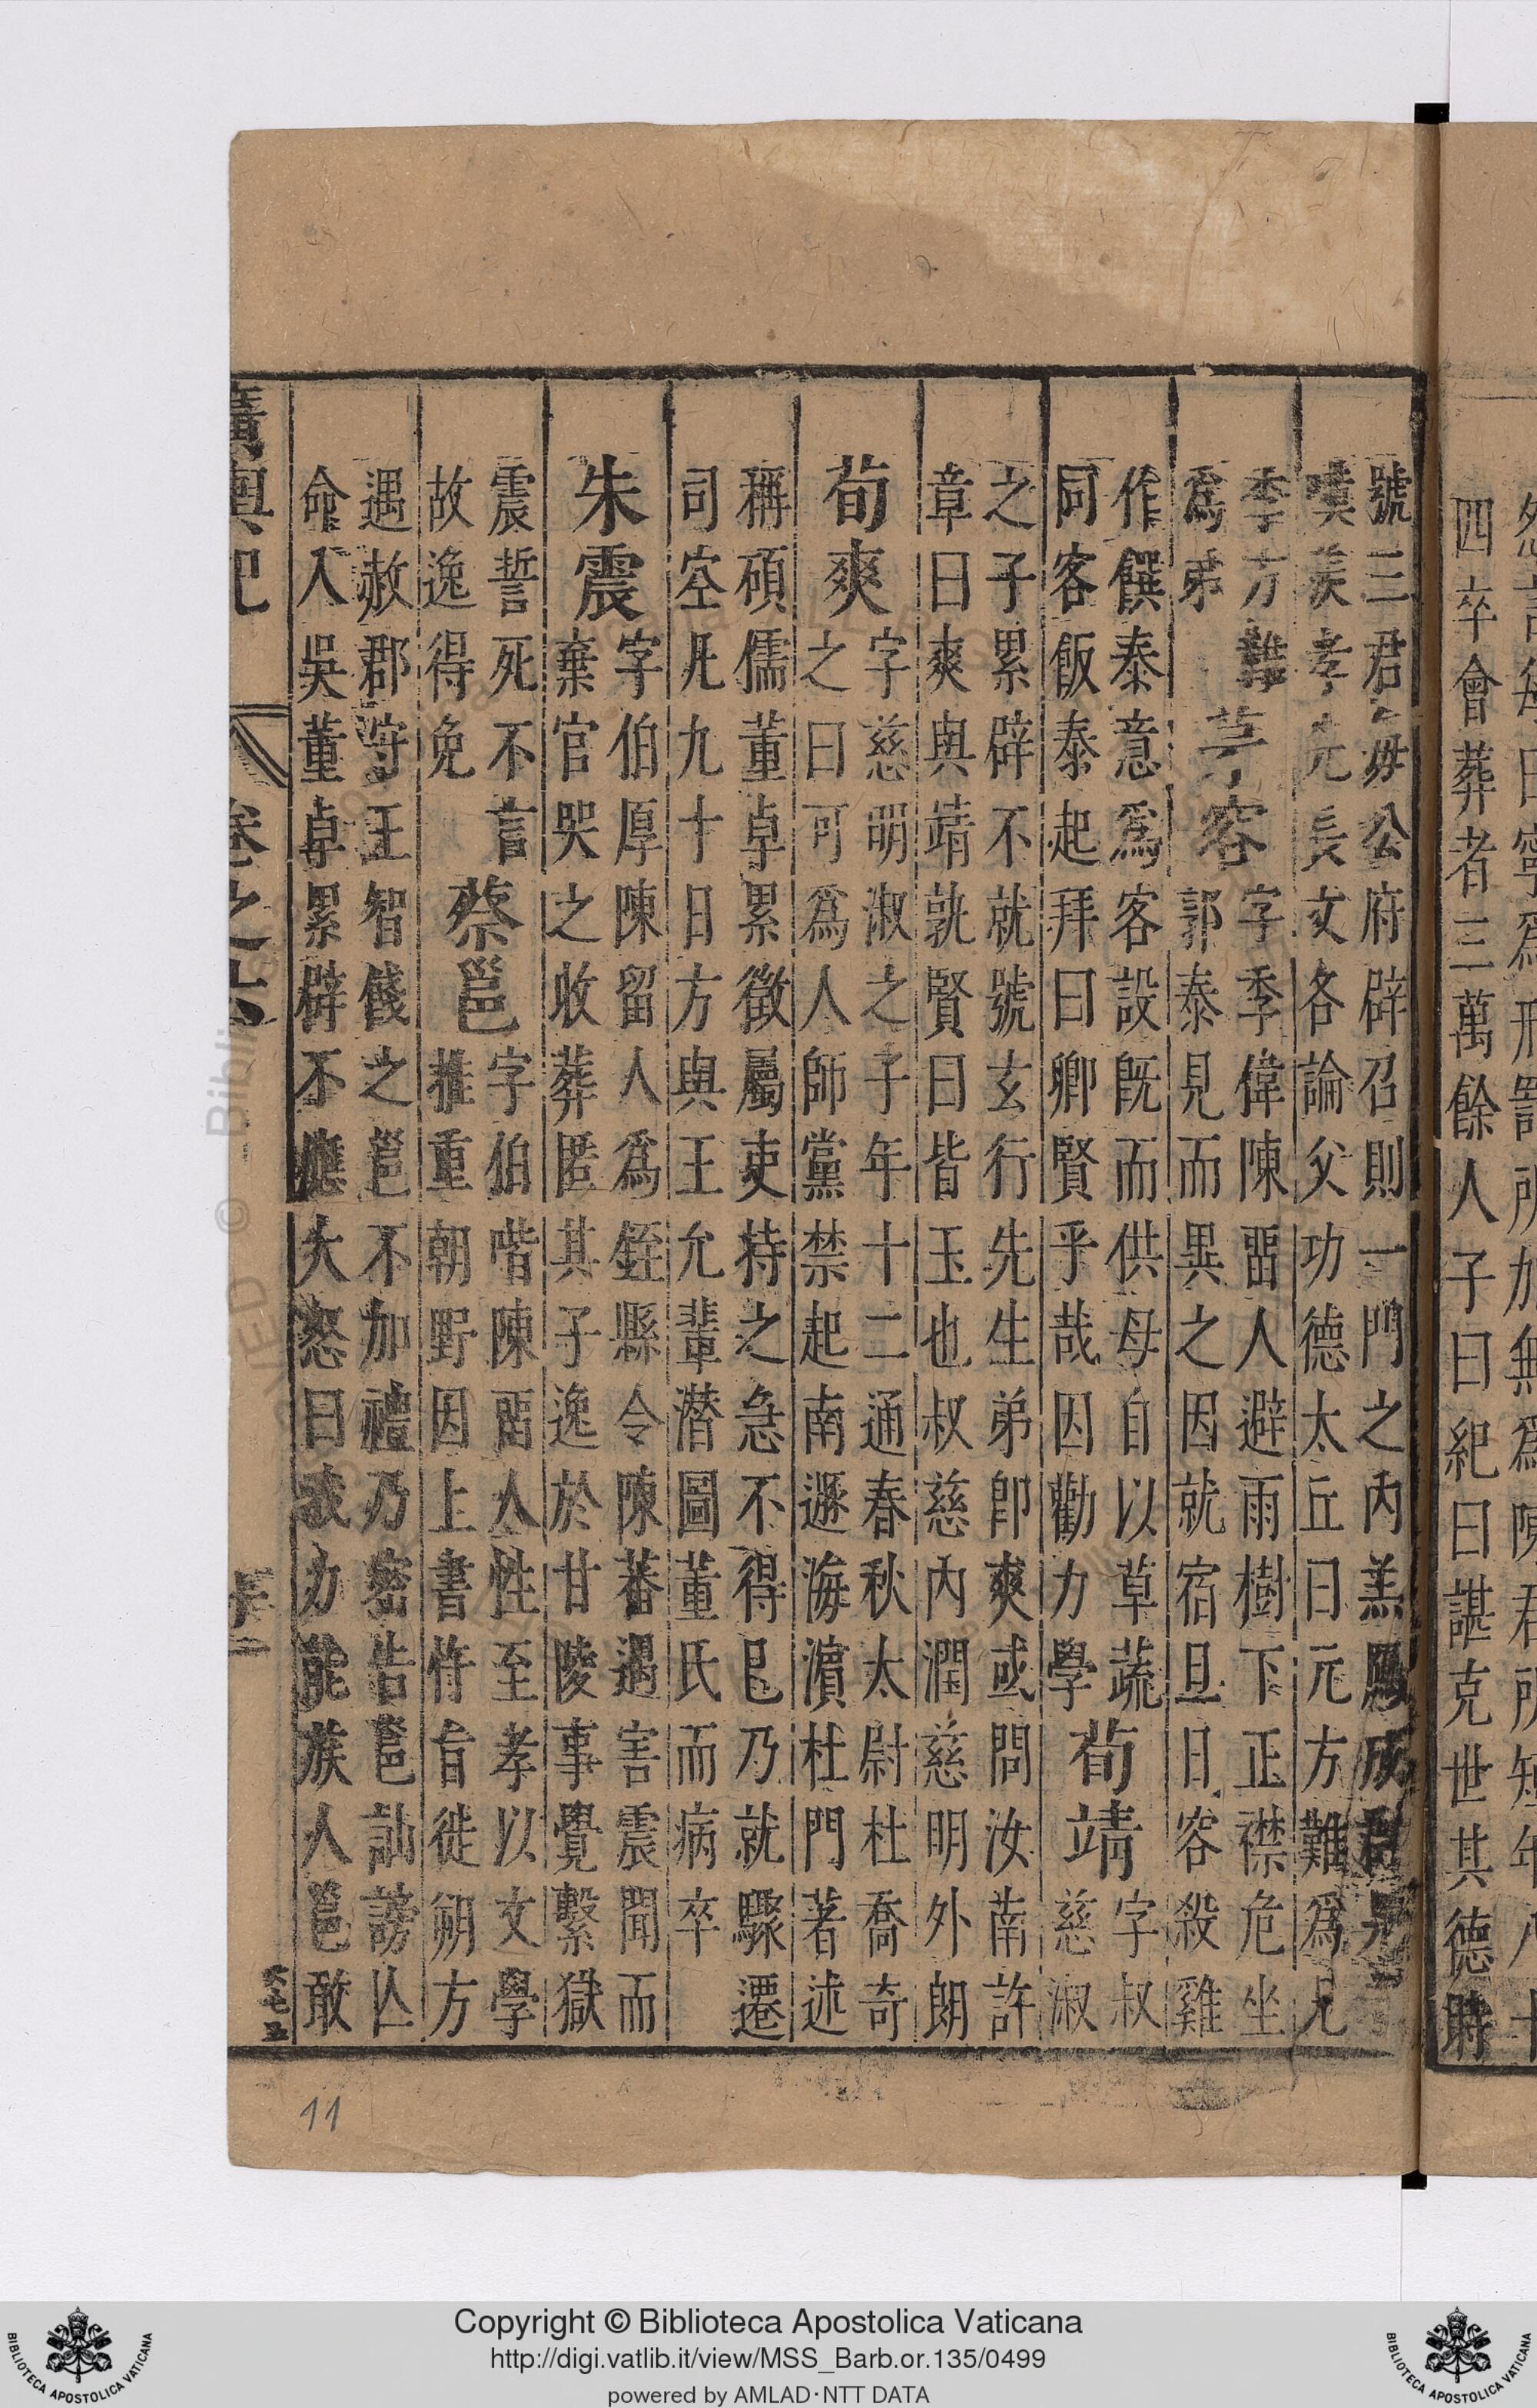 四卒會葬者三萬餘人子曰紀曰諶克世其德時
號三君每公府辟召則一門之內羔鴈成群
嘆美孝先長文各論父功德太丘曰元方難爲兄
季方難
爲弟
茅容
字季偉陳畱人避雨樹下正襟危坐
郭泰見而異之因就宿旦日容殺雞
作饌泰意爲客設旣而供母自以草蔬
同客飯泰起拜曰卿賢乎哉因勸力學
荀靖
字叔
慈淑
之子累辟不就號玄行先生弟卽爽或問汝南許
章曰爽與靖孰賢曰皆玉也叔慈內潤慈明外朗
荀爽
字慈明淑之子年十二通春秋太尉杜喬奇
之曰可爲人師黨禁起南遯海濱杜門著述
稱碩儒董卓累徵屬吏持之急不得已乃就驟遷
司空凡九十日方與王允輩潛圖董氏而病卒
朱震
字伯厚陳留人爲銍縣令陳蕃遇害震聞而
棄官哭之收葬匿其子逸於甘陵事覺繫獄
震誓死不言
故逸得免
蔡邕
字伯喈陳畱人性至孝以文學
推重朝野因上書忤旨徙朔方
遇赦郡守王智餞之邕不加禮乃密告邕訕謗亾
命入吳董卓累辟不應大怒曰我力能族人邕敢
廣輿記
卷之六
Copyright © Biblioteca Apostolica Vaticana
http://digi.vatlib.it/view/MSS_Barb.or.135/0499
powered by AMLAD·NTT DATA
BIBLIOTECA APOSTOLICA VATICANA
BIBLIOTECA APOSTOLICA VATICANA
11